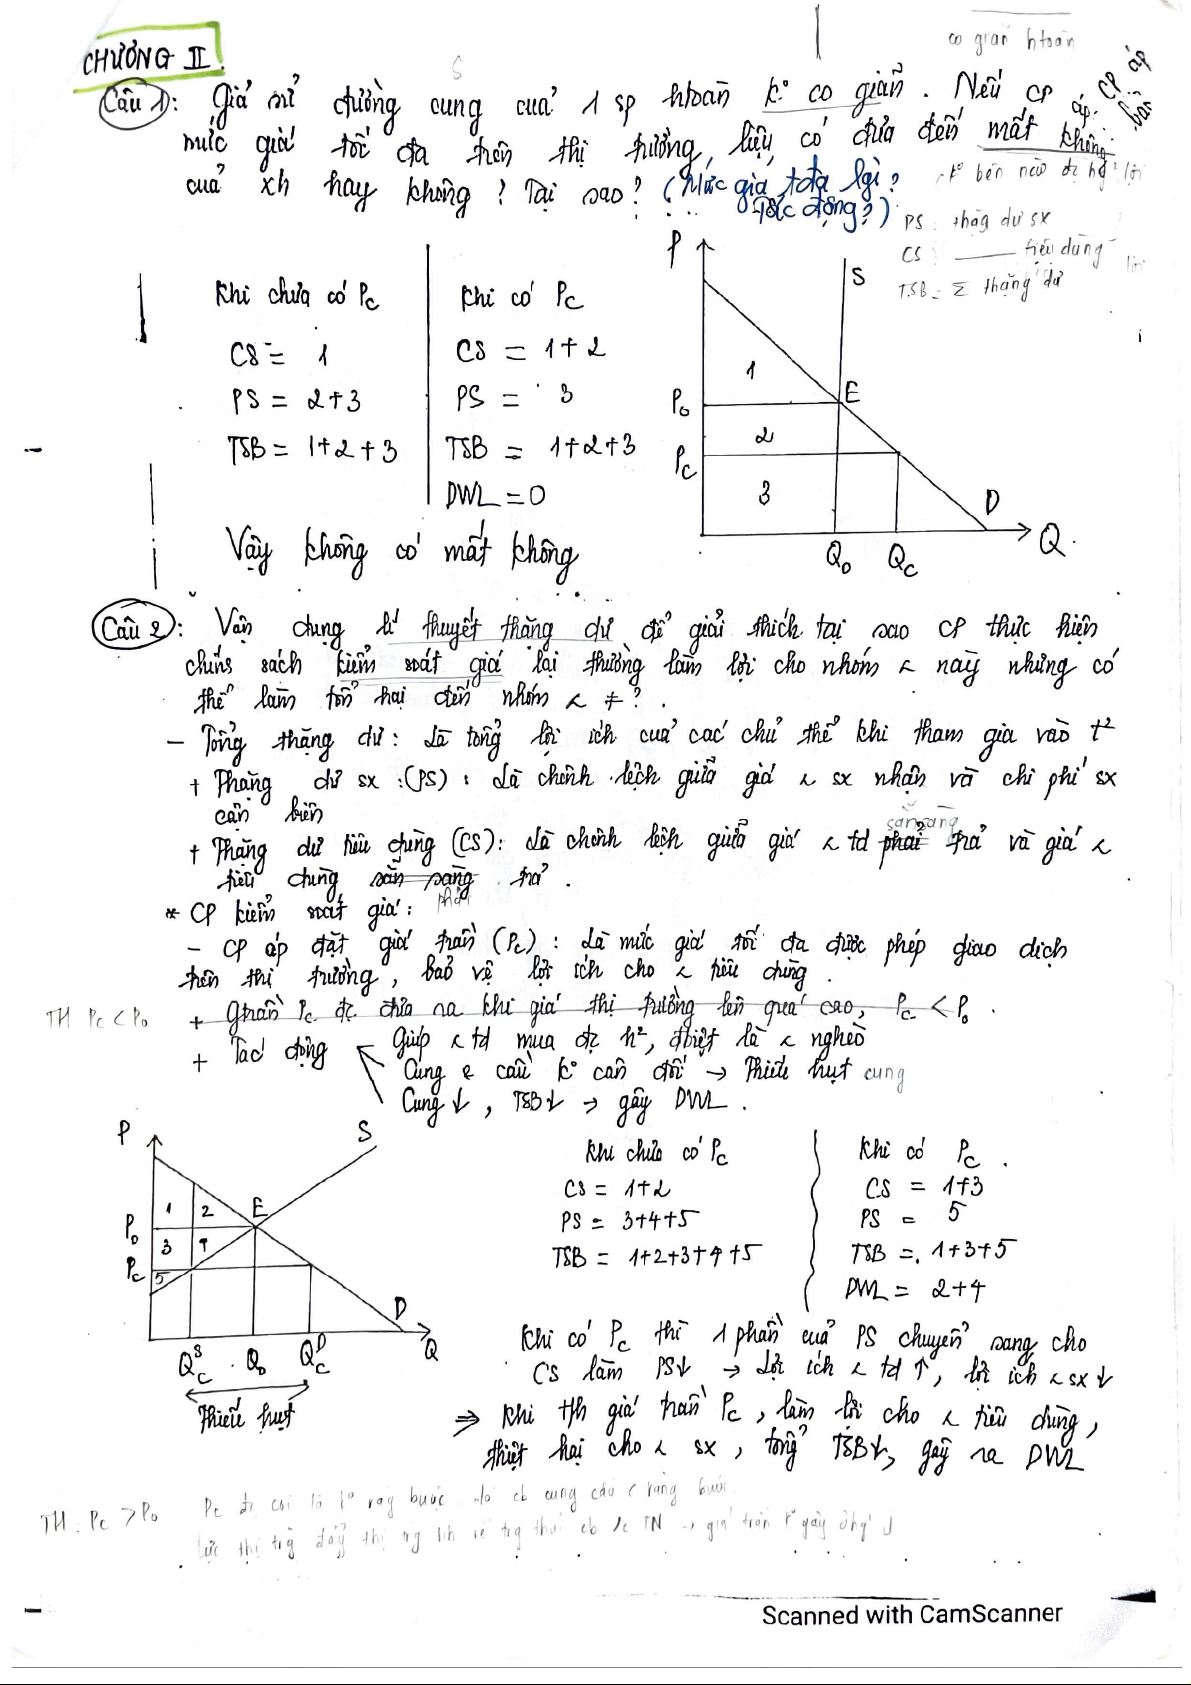 CHƯƠNG II
co giãn htoàn
Câu 1: Giả sử đường cung của 1 sp htoàn k° co giãn. Nếu CP áp
CP áp
bán
mức giá tối đa trên thị trường, liệu có đưa đến mất không
của xh hay không? Tại sao? (Mức giá tđa lgì?
Tác động?)
k° bên nào đc hg lợi
PS: thặg dư sx
CS: ——— tiêu dùng
TSB = Σ thặng dư
Khi chưa có Pc
CS = 1
PS = 2+3
TSB = 1+2+3
Khi có Pc
CS = 1+2
PS = 3
TSB = 1+2+3
DWL = 0
P
S
1
P₀
E
2
Pc
3
D
Q₀
Qc
Q
Vậy không có mất không
Câu 2: Vận dụng lí thuyết thặng dư để giải thích tại sao CP thực hiện
chính sách kiểm soát giá lại thường làm lợi cho nhóm < này nhưng có
thể làm tổn hại đến nhóm < ≠?
- Tổng thặng dư: Là tổng lợi ích của các chủ thể khi tham gia vào t²
+ Thặng dư sx (PS): Là chênh lệch giữa giá < sx nhận và chi phí sx
cận biên
sẵn sàng
+ Thặng dư tiêu dùng (CS): Là chênh lệch giữa giá < td phải trả và giá <
tiêu dùng sẵn sàng trả.
phải
* CP kiểm soát giá:
- CP áp đặt giá trần (Pc): Là mức giá tối đa được phép giao dịch
trên thị trường, bảo vệ lợi ích cho < tiêu dùng.
TH Pc < P₀
+ Gtrần Pc đc đưa ra khi giá thị trường lên quá cao, Pc < P₀.
+ Tác động
Giúp < td mua đc h², đbiệt là < nghèo
Cung & cầu k° cân đối → Thiếu hụt cung
Cung ↓, TSB ↓ → gây DWL.
P
S
1
2
E
P₀
3
4
Pc
5
D
Q
Q^S_C
Q₀
Q^D_C
Thiếu hụt
Khi chưa có Pc
CS = 1+2
PS = 3+4+5
TSB = 1+2+3+4+5
Khi có Pc
CS = 1+3
PS = 5
TSB = 1+3+5
DWL = 2+4
Khi có Pc thì 1 phần của PS chuyển sang cho
CS làm PS↓ → Lợi ích < td ↑, lợi ích < sx ↓
⇒ Khi th giá trần Pc, làm lợi cho < tiêu dùng,
thiệt hại cho < sx, tổng TSB↓, gây ra DWL
TH: Pc > P₀
Pc đc coi là k° ràg buộc
→ giá trần k° gây ảhg
Scanned with CamScanner